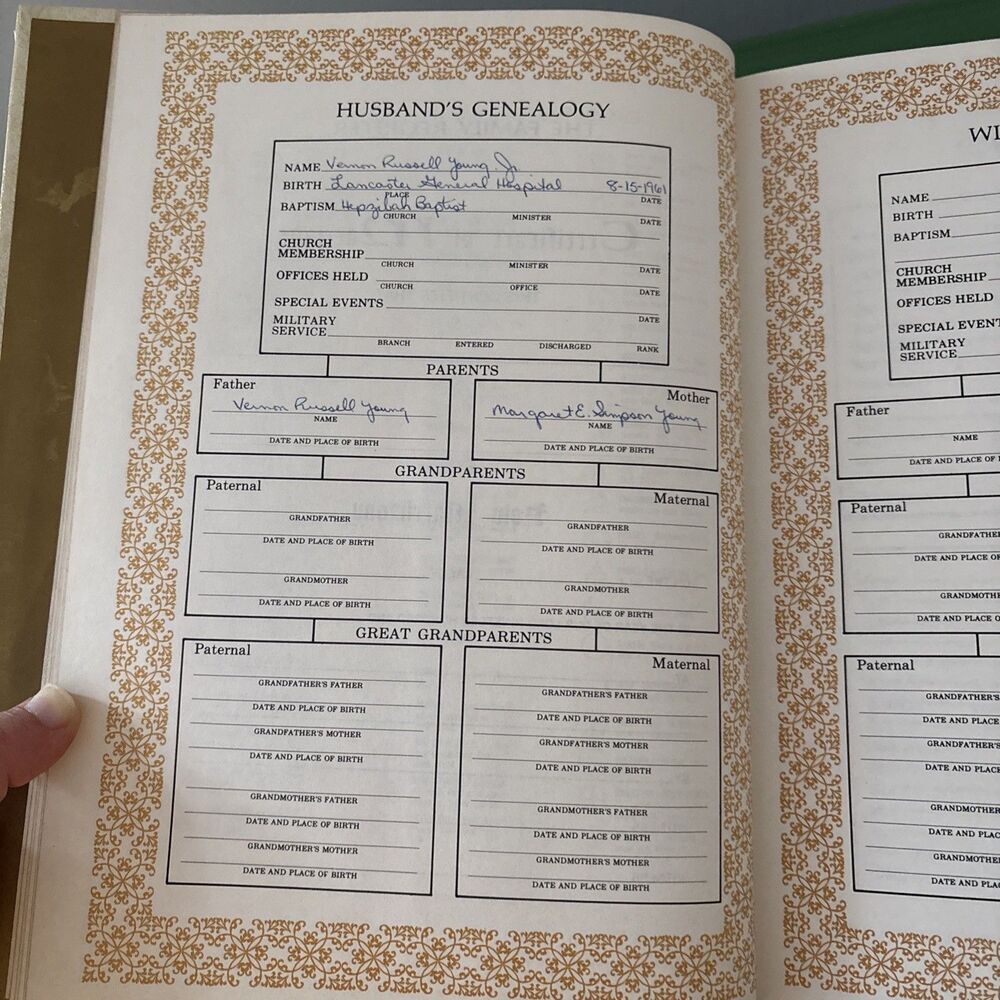 HUSBAND'S GENEALOGY
NAME Vernon Russell Young Jr
BIRTH Lancaster General Hospital 8-15-1961
PLACE DATE
BAPTISM Hepzibah Baptist
CHURCH MINISTER DATE
CHURCH
MEMBERSHIP
CHURCH MINISTER DATE
OFFICES HELD
CHURCH OFFICE DATE
SPECIAL EVENTS
DATE
MILITARY
SERVICE
BRANCH ENTERED DISCHARGED RANK
PARENTS
Father
Vernon Russell Young
NAME
DATE AND PLACE OF BIRTH
Mother
Margaret E. Simpson Young
NAME
DATE AND PLACE OF BIRTH
GRANDPARENTS
Paternal
GRANDFATHER
DATE AND PLACE OF BIRTH
GRANDMOTHER
DATE AND PLACE OF BIRTH
Maternal
GRANDFATHER
DATE AND PLACE OF BIRTH
GRANDMOTHER
DATE AND PLACE OF BIRTH
GREAT GRANDPARENTS
Paternal
GRANDFATHER'S FATHER
DATE AND PLACE OF BIRTH
GRANDFATHER'S MOTHER
DATE AND PLACE OF BIRTH
GRANDMOTHER'S FATHER
DATE AND PLACE OF BIRTH
GRANDMOTHER'S MOTHER
DATE AND PLACE OF BIRTH
Maternal
GRANDFATHER'S FATHER
DATE AND PLACE OF BIRTH
GRANDFATHER'S MOTHER
DATE AND PLACE OF BIRTH
GRANDMOTHER'S FATHER
DATE AND PLACE OF BIRTH
GRANDMOTHER'S MOTHER
DATE AND PLACE OF BIRTH
WI
NAME
BIRTH
BAPTISM
CHURCH
MEMBERSHIP
OFFICES HELD
SPECIAL EVENT
MILITARY
SERVICE
Father
NAME
DATE AND PLACE OF B
Paternal
GRANDFATHE
DATE AND PLACE OF
GRANDMOTH
DATE AND PLACE OF
Paternal
GRANDFATHER'S
DATE AND PLAC
GRANDFATHER'
DATE AND PLAC
GRANDMOTHER
DATE AND PLA
GRANDMOTHE
DATE AND PLA